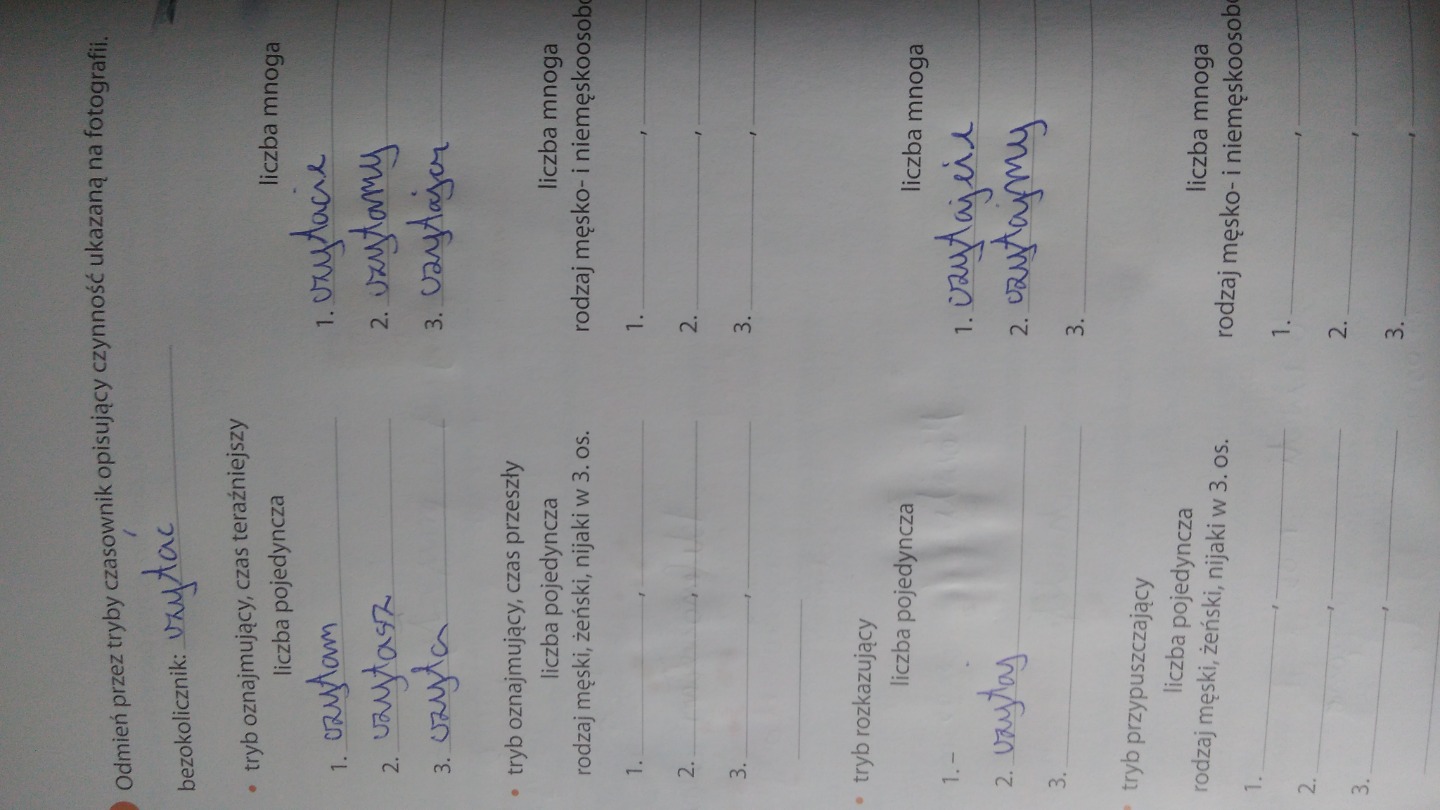 Odmień przez tryby czasownik opisujący czynność ukazaną na fotografii.
bezokolicznik: czytać
• tryb oznajmujący, czas teraźniejszy
liczba pojedyncza
1. czytam
2. czytasz
3. czyta
liczba mnoga
1. czytacie
2. czytamy
3. czytają
• tryb oznajmujący, czas przeszły
liczba pojedyncza
rodzaj męski, żeński, nijaki w 3. os.
1. ,
2. ,
3. ,
liczba mnoga
rodzaj męsko- i niemęskoosobo
1. ,
2. ,
3. ,
• tryb rozkazujący
liczba pojedyncza
1. –
2. czytaj
3.
liczba mnoga
1. czytajcie
2. czytajmy
3.
• tryb przypuszczający
liczba pojedyncza
rodzaj męski, żeński, nijaki w 3. os.
1. ,
2. ,
3. ,
liczba mnoga
rodzaj męsko- i niemęskoosobo
1. ,
2. ,
3. ,